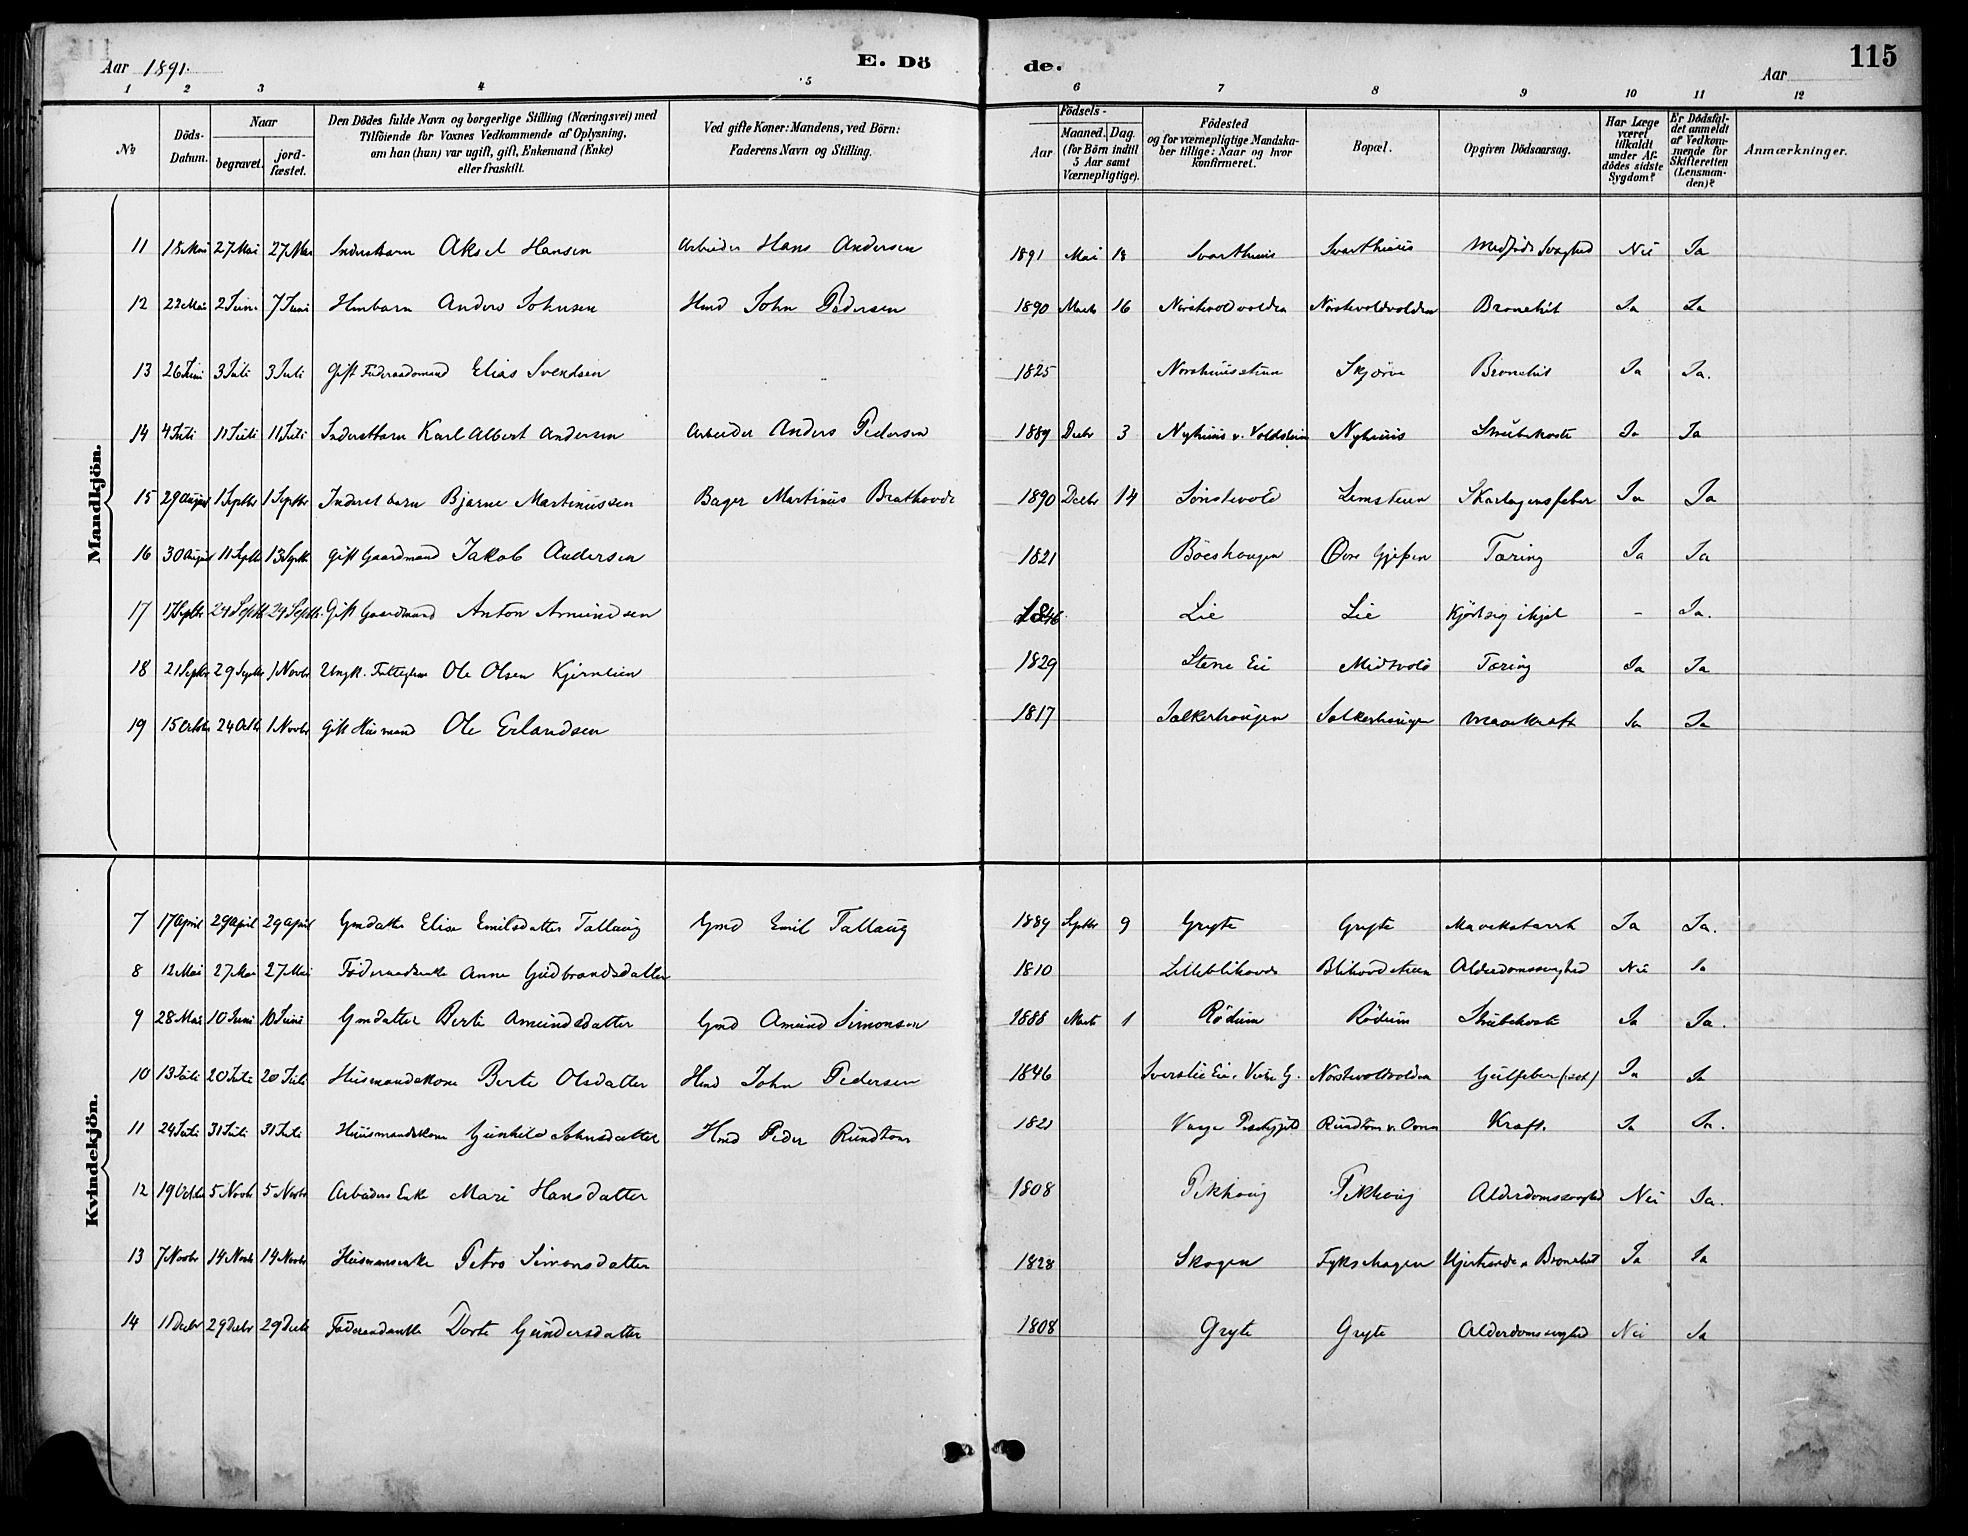 Aar 1891. E. Dö de. Aar 115
1 2 3 4 5 6 7 8 9 10 11 12
№ Döds-Datum. Naar begravet. jord-fæstet. Den Dödes fulde Navn og borgerlige Stilling (Næringsvei) med Tilföiende for Voxnes Vedkommende af Oplysning, om han (hun) var ugift, gift, Enkemand (Enke) eller fraskilt. Ved gifte Koner: Mandens, ved Börn: Faderens Navn og Stilling. Födsels- Aar Maaned. Dag. (for Börn indtil 5 Aar samt Værnepligtige). Födested og for værnepligtige Mandskaber tillige: Naar og hvor konfirmeret. Bopæl. Opgiven Dödsaarsag. Har Læge været tilkaldt under Afdödes sidste Sygdom? Er Dödsfaldet anmeldt af Vedkommende for Skifteretten (Lensmanden)? Anmærkninger.
Mandkjön.
11 18 Mai 27 Mai 27 Mai Inderstbarn Aksel Hansen Arbeider Hans Andersen 1891 Mai 18 Svarthuus Svarthuus Medfødt Svaghed Nei Ja
12 22 Mai 2 Juni 7 Juni Hmbarn Anders Johnsen Hmd John Pedersen 1890 Marts 16 Norstevoldvolden Norstevoldvolden Bronchit Ja Ja
13 26 Juni 3 Juli 3 Juli Gift Føderaadsmand Elias Svendsen 1825 Skjørve Bronchit Ja Ja.
14 4 Juli 11 Juli 11 Juli Inderstbarn Karl Albert Andersen Arbeider Anders Pedersen 1889 Decbr 3 Nyhuus v. Nyhuus Strubehoste Ja Ja
15 29 August 1 Septbr 1 Septbr Inderstbarn Bjarne Martinussen Bager Martinus Brathovde 1890 Decbr 14 Sønstevold Lemsteen Skarlagensfeber Ja Ja
16 30 August 11 Septbr 13 Septbr Gift Gaardmand Jakob Andersen 1821 Böeshougen Øvre Tæring Ja Ja
17 17 Septbr 24 Septbr 24 Septbr. Gift Gaardmand Anton Amundsen 1846 Lie Lie Kjørt sig ihjel - Ja.
18 21 Septbr 29 Septbr 1 Novbr Ungk. Fattiglem Ole Olsen Kjernlien 1829 Stene Eie Midtvold Tæring Ja Ja
19 15 Octbr 24 Octbr 1 Novbr Gift Husmand Ole Erlandsen 1817 Salkerhougen Salkerhougen Mavekræft Ja Ja
Kvindekjön.
7 17 April 29 April 29 April Gmdatter Elise Emilsdatter Tallaug Gmd Emil Tallaug 1889 Septbr 9 Gryte Gryte Mavekatarrh Ja Ja.
8 12 Mai 27 Mai 27 Mai Føderaadsenke Anne Gudbrandsdatter 1810 Lilleblihovde Blihovdsteen Alderdomssvaghed Nei Ja
9 28 Mai 10 Juni 10 Juni Gmdatter Berte Amundsdatter Gmd Amund Simonsen 1888 Marts 1 Rödum Rödum Strubehoste Ja Ja.
10 13 Juli 20 Juli 20 Juli Husmandskone Berte Olsdatter Hmd John Pedersen 1846 Sverslie Eie, Norstevoldvolden Gulfeber Ja Ja
11 24 Juli 31 Juli 31 Juli Huusmandskone Gunhild Johnsdatter Hmd Peder Rundtom Vaage Præstegjeld Rundtom v. Kræft. Ja Ja.
12 19 Octbr 5 Novbr 5 Novbr Arbeiders Enke Mari Hansdatter 1808 Pikhoug Pikhoug Alderdomssvaghed Nei Ja.
13 7 Novbr 14 Novbr 14 Novbr Husmansenke Petra Simonsdatter 1828 Skogen Fykshagen Bronchit Ja Ja
14 11 Decbr 29 Decbr 29 Decbr Føderaadsenke Dorte Gundersdatter 1808 Gryte Gryte Alderdomssvaghed Nei Ja